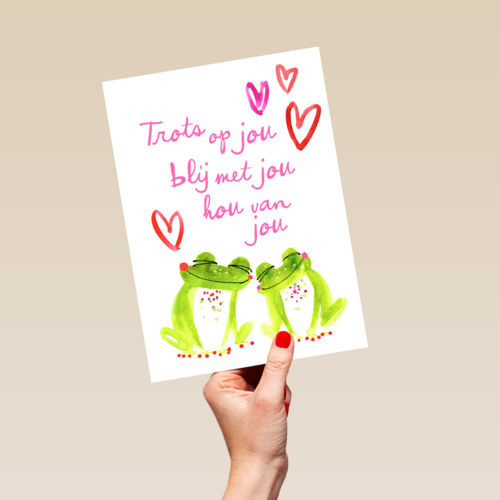 Trots op jou
blij met jou
hou van
jou